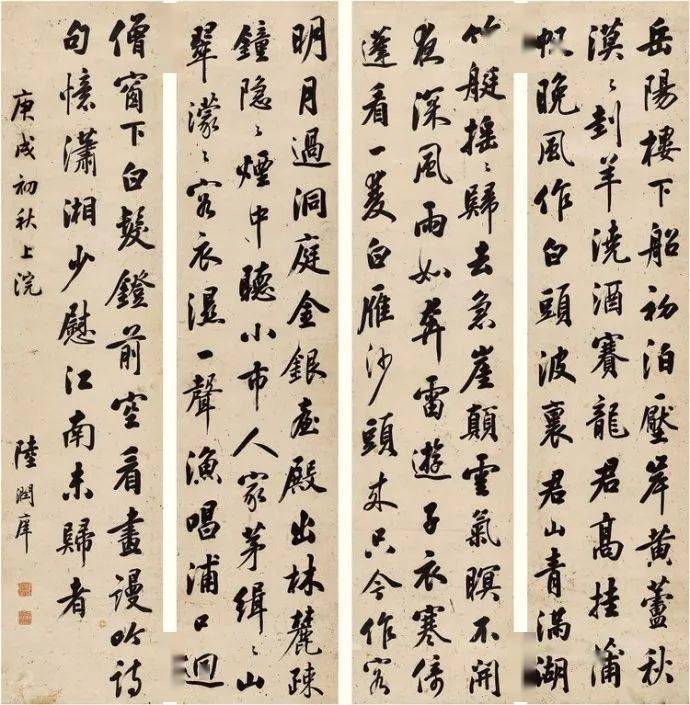 岳陽樓下船初泊壓岸黃蘆秋
漠〻刲羊澆酒賽龍君高挂蒲
帆晚風作白頭波裏君山青滿湖
竹艇搖〻歸去急崖顛雲氣暝不開
夜深風雨如奔雷遊子衣寒倚
蓬看一雙白雁沙頭來只今作客
明月過洞庭金銀臺殿出林麓疎
鐘隱〻煙中聽小市人家茅緝〻山
翠濛〻客衣濕一聲漁唱浦口迴
僧窗下白髮鐙前空看畫謾吟詩
句憶瀟湘少慰江南未歸者
庚戌初秋上浣
陸潤庠